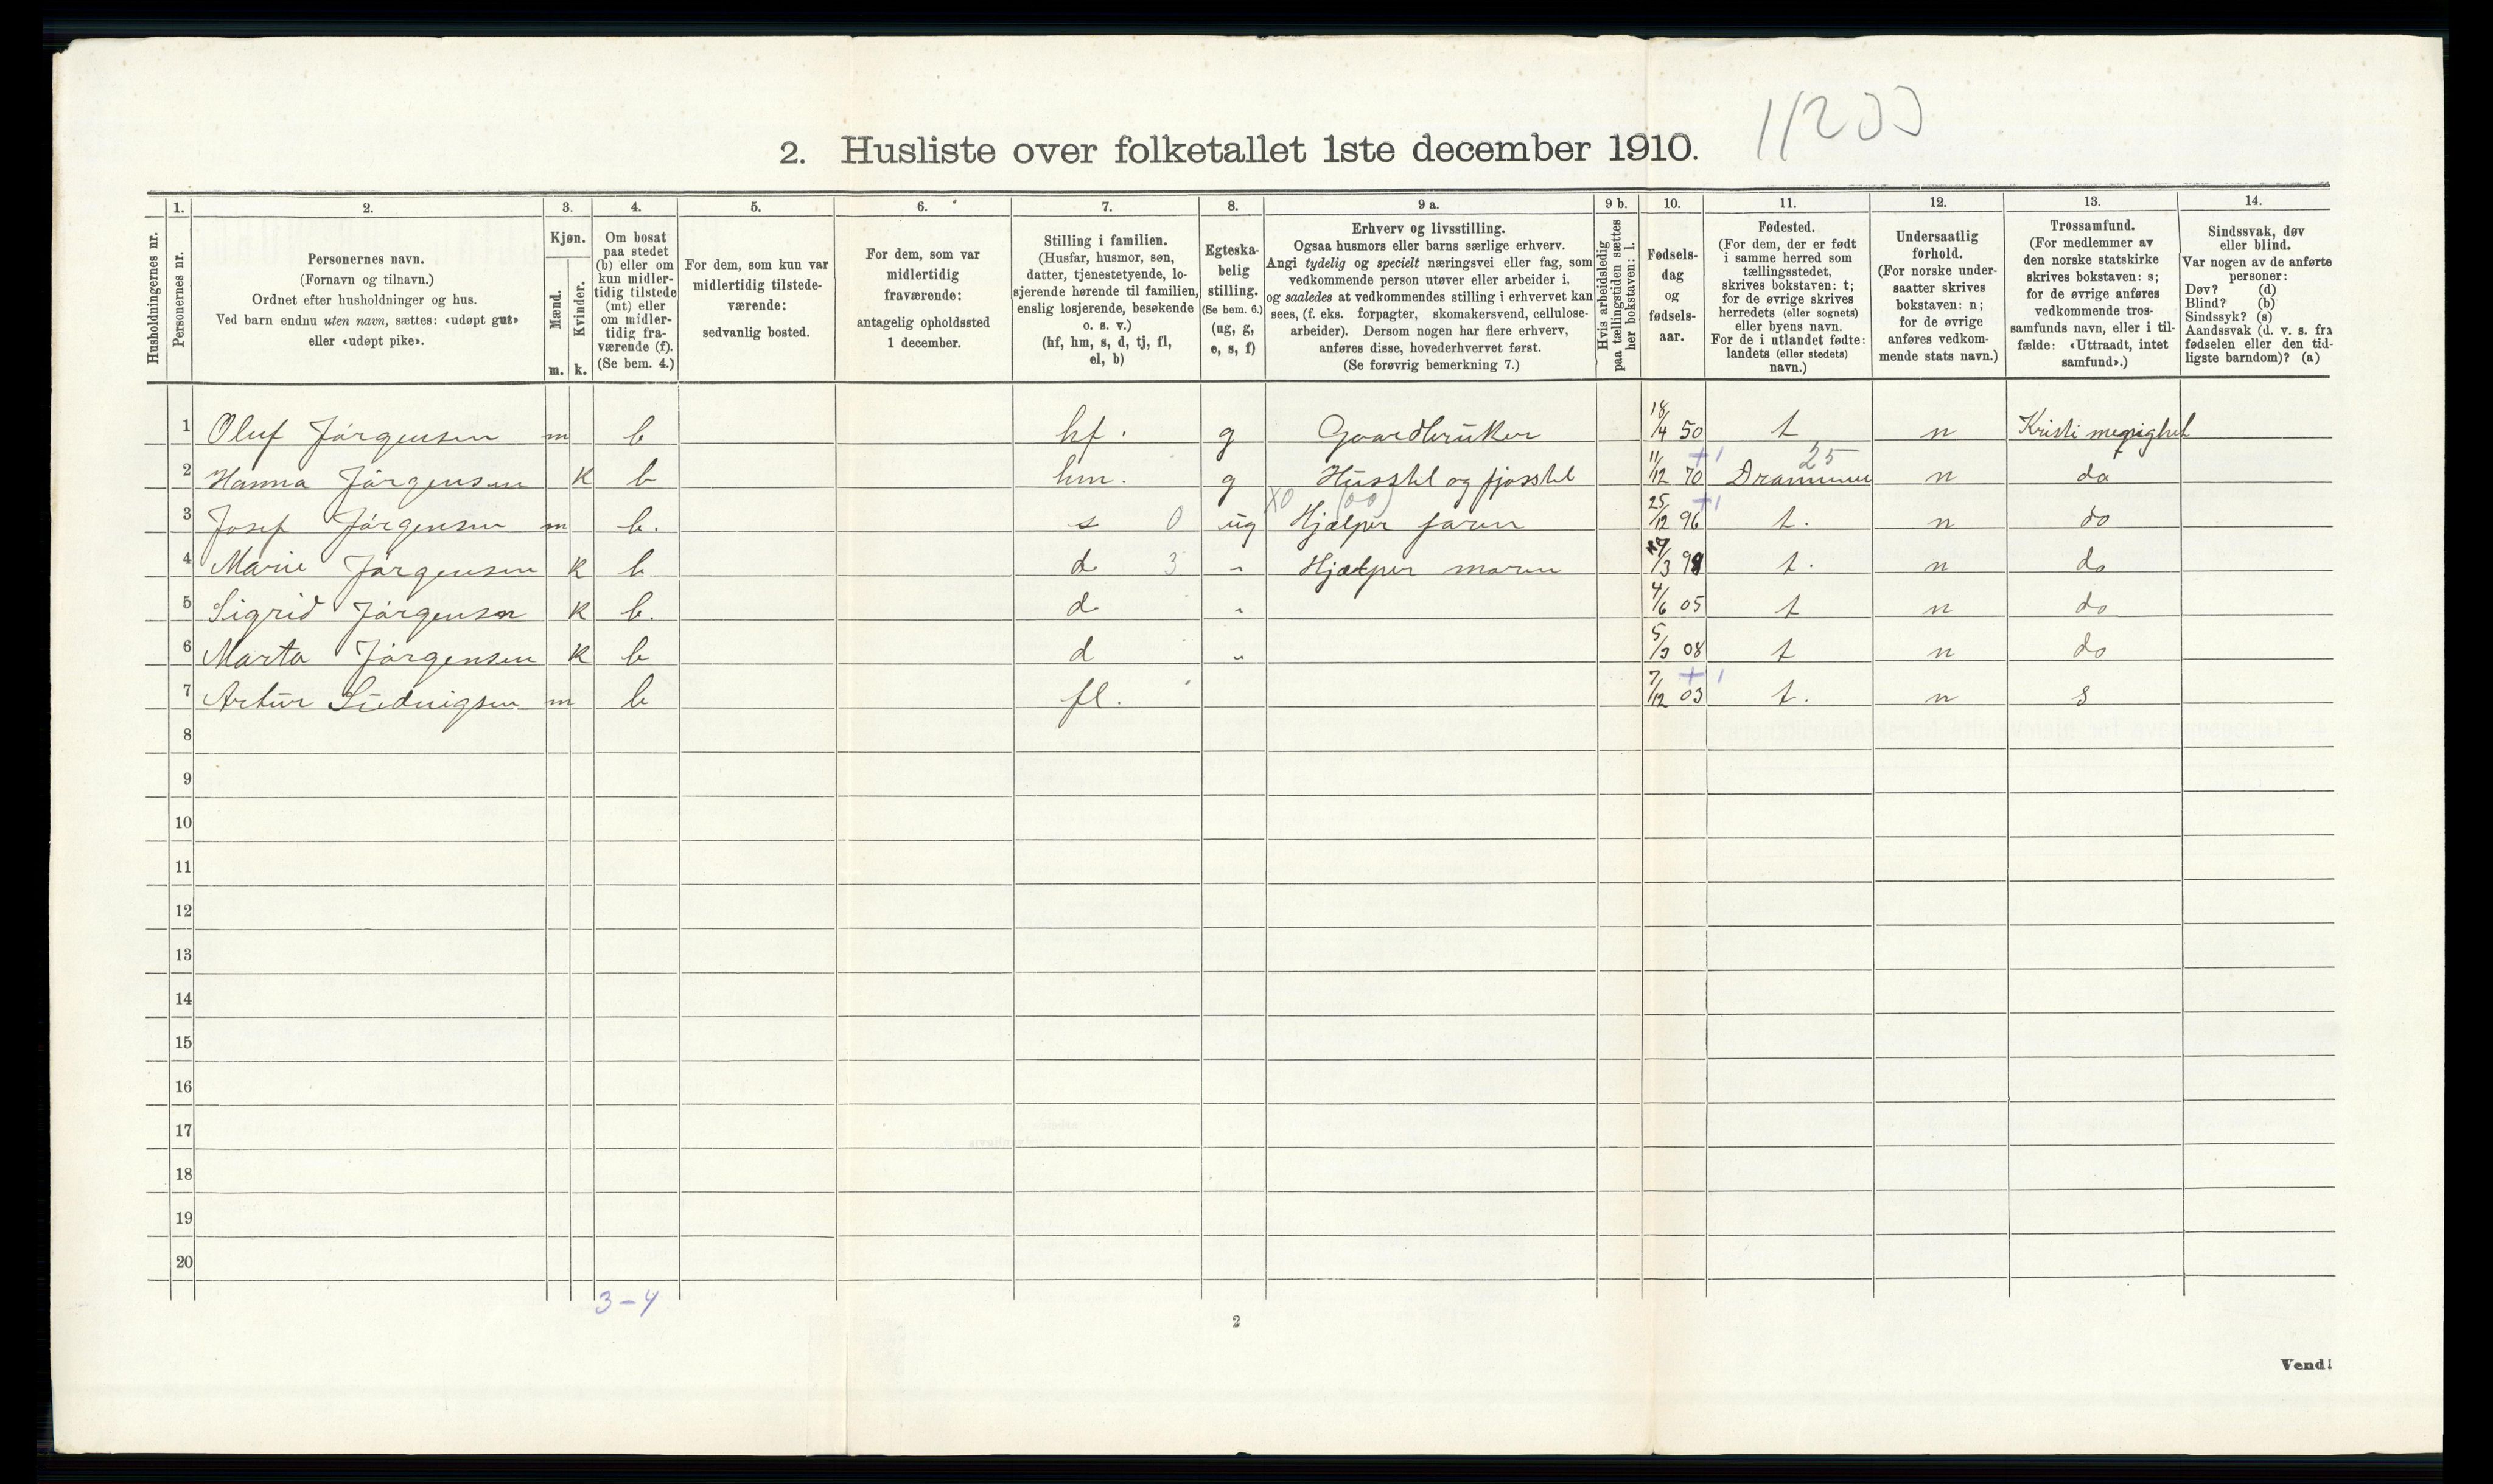 11233
2. Husliste over folketallet 1ste december 1910.
Husholdningernes nr.
1.
Personernes nr.
2.
Personernes navn.
(Fornavn og tilnavn.)
Ordnet efter husholdninger og hus.
Ved barn endnu uten navn, sættes: «udøpt gut»
eller «udøpt pike».
3.
Kjøn.
Mænd.
m.
Kvinder.
k.
4.
Om bosat
paa stedet
(b) eller om
kun midler-
tidig tilstede
(mt) eller
om midler-
tidig fra-
værende (f).
(Se bem. 4.)
5.
For dem, som kun var
midlertidig tilstede-
værende:
sedvanlig bosted.
6.
For dem, som var
midlertidig
fraværende:
antagelig opholdssted
1 december.
7.
Stilling i familien.
(Husfar, husmor, søn,
datter, tjenestetyende, lo-
sjerende hørende til familien,
enslig losjerende, besøkende
o. s. v.)
(hf, hm, s, d, tj, fl,
el, b)
8.
Egteska-
belig
stilling.
(Se bem. 6.)
(ug, g,
e, s, f)
9 a.
Erhverv og livsstilling.
Ogsaa husmors eller barns særlige erhverv.
Angi tydelig og specielt næringsvei eller fag, som
vedkommende person utøver eller arbeider i,
og saaledes at vedkommendes stilling i erhvervet kan
sees, (f. eks. forpagter, skomakersvend, cellulose-
arbeider). Dersom nogen har flere erhverv,
anføres disse, hovederhvervet først.
(Se forøvrig bemerkning 7.)
9 b.
Hvis arbeidsledig
paa tællingstiden sættes
her bokstaven: l.
10.
Fødsels-
dag
og
fødsels-
aar.
11.
Fødested.
(For dem, der er født
i samme herred som
tællingsstedet,
skrives bokstaven: t;
for de øvrige skrives
herredets (eller sognets)
eller byens navn.
For de i utlandet fødte:
landets (eller stedets)
navn.)
12.
Undersaatlig
forhold.
(For norske under-
saatter skrives
bokstaven: n;
for de øvrige
anføres vedkom-
mende stats navn.)
13.
Trossamfund.
(For medlemmer av
den norske statskirke
skrives bokstaven: s;
for de øvrige anføres
vedkommende tros-
samfunds navn, eller i til-
fælde: «Uttraadt, intet
samfund».)
14.
Sindssvak, døv
eller blind.
Var nogen av de anførte
personer:
Døv? (d)
Blind? (b)
Sindssyk? (s)
Aandssvak (d. v. s. fra
fødselen eller den tid-
ligste barndom)? (a)
1 Oluf Jörgensen m b hf. g Gaardbrüker 18/4 50 t n Kristi menighet
2 Hanna Jörgensen k b hm. g Husstel og fjøsstel 11/12 70 +1 Drammen 25 n do
3 Josef Jörgensen m b. s 0 ug X0 (00) Hjælper faren 25/12 96 +1 t. n do
4 Marie Jörgensen k b d 3 " Hjælper moren /3 98 t. n do
5 Sigrid Jörgensen k b. d " 4/6 05 t n do
6 Marta Jörgensen k b d " 5/3 08 t n do
7 Artür Lüdvigsen m b fl. 7/12 03 +1 t. n s
8
9
10
11
12
13
14
15
16
17
18
19
20
3-4
2
Vend!